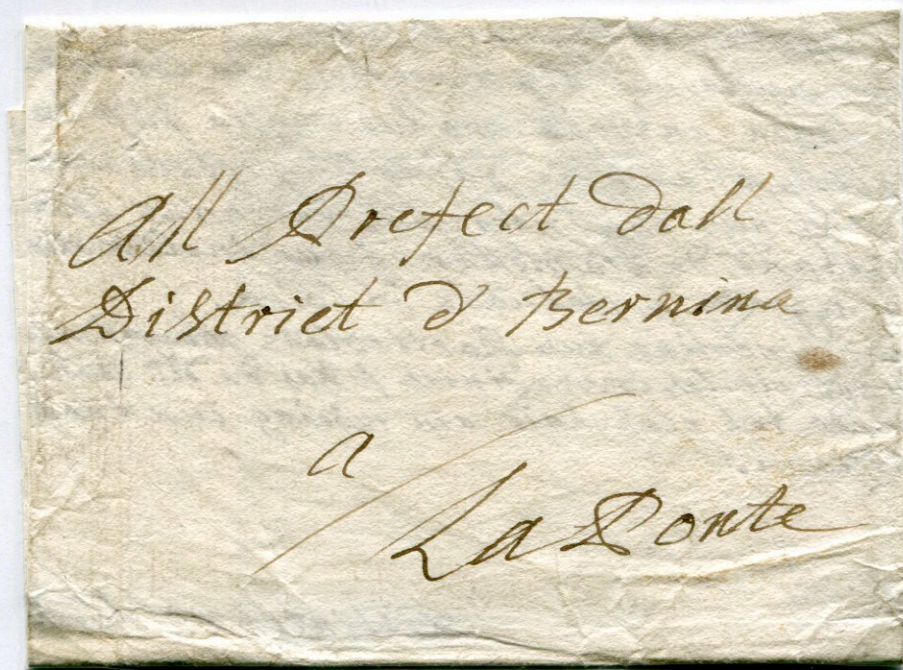 All Prefect dall
District d' Bernina
a
La Ponte